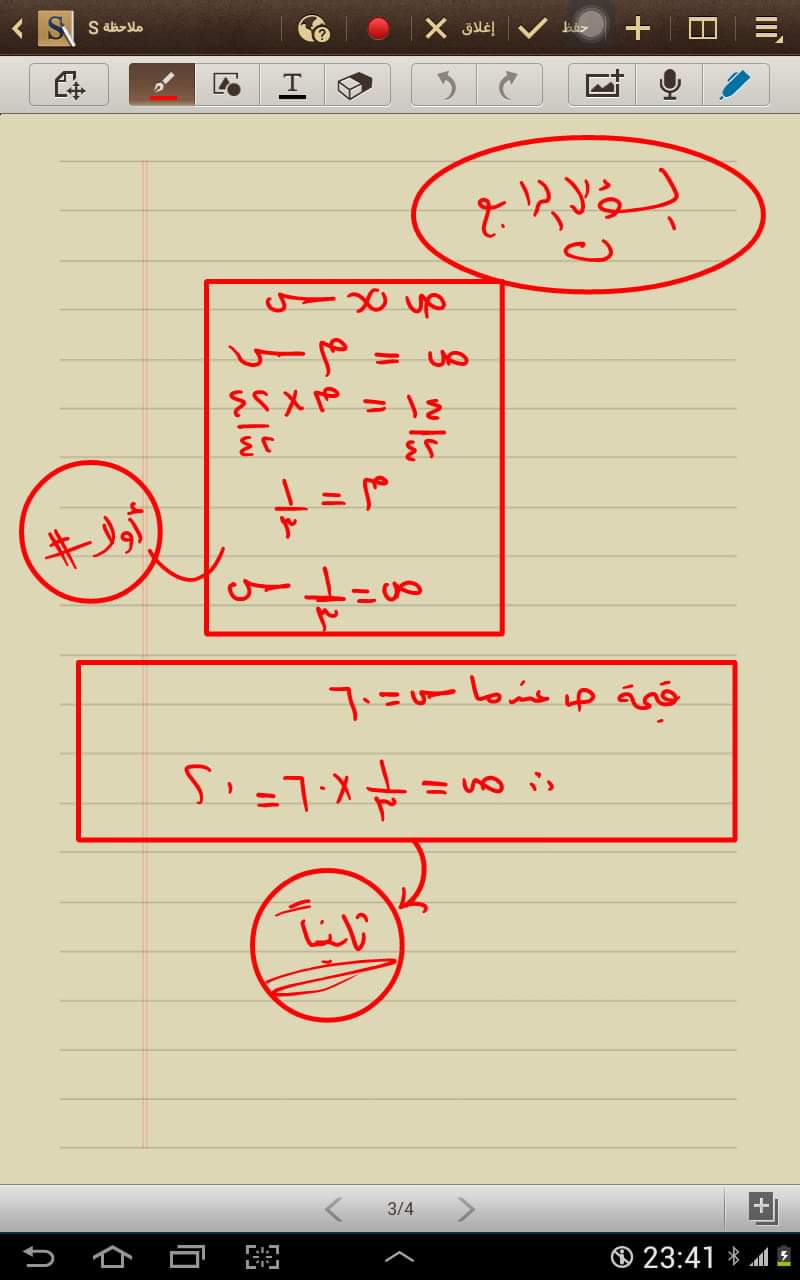 ملاحظة S
إغلاق
حفظ
T
السؤال الرابع
ب
ص ∝ س
ص = م س
١٤ = م × ٤٢
٤٢ ٤٢
م = ١/٣
أولا #
ص = ١/٣ س
قيمة ص عندما س = ٦٠
∴ ص = ١/٣ × ٦٠ = ٢٠
ثانياً
3/4
23:41